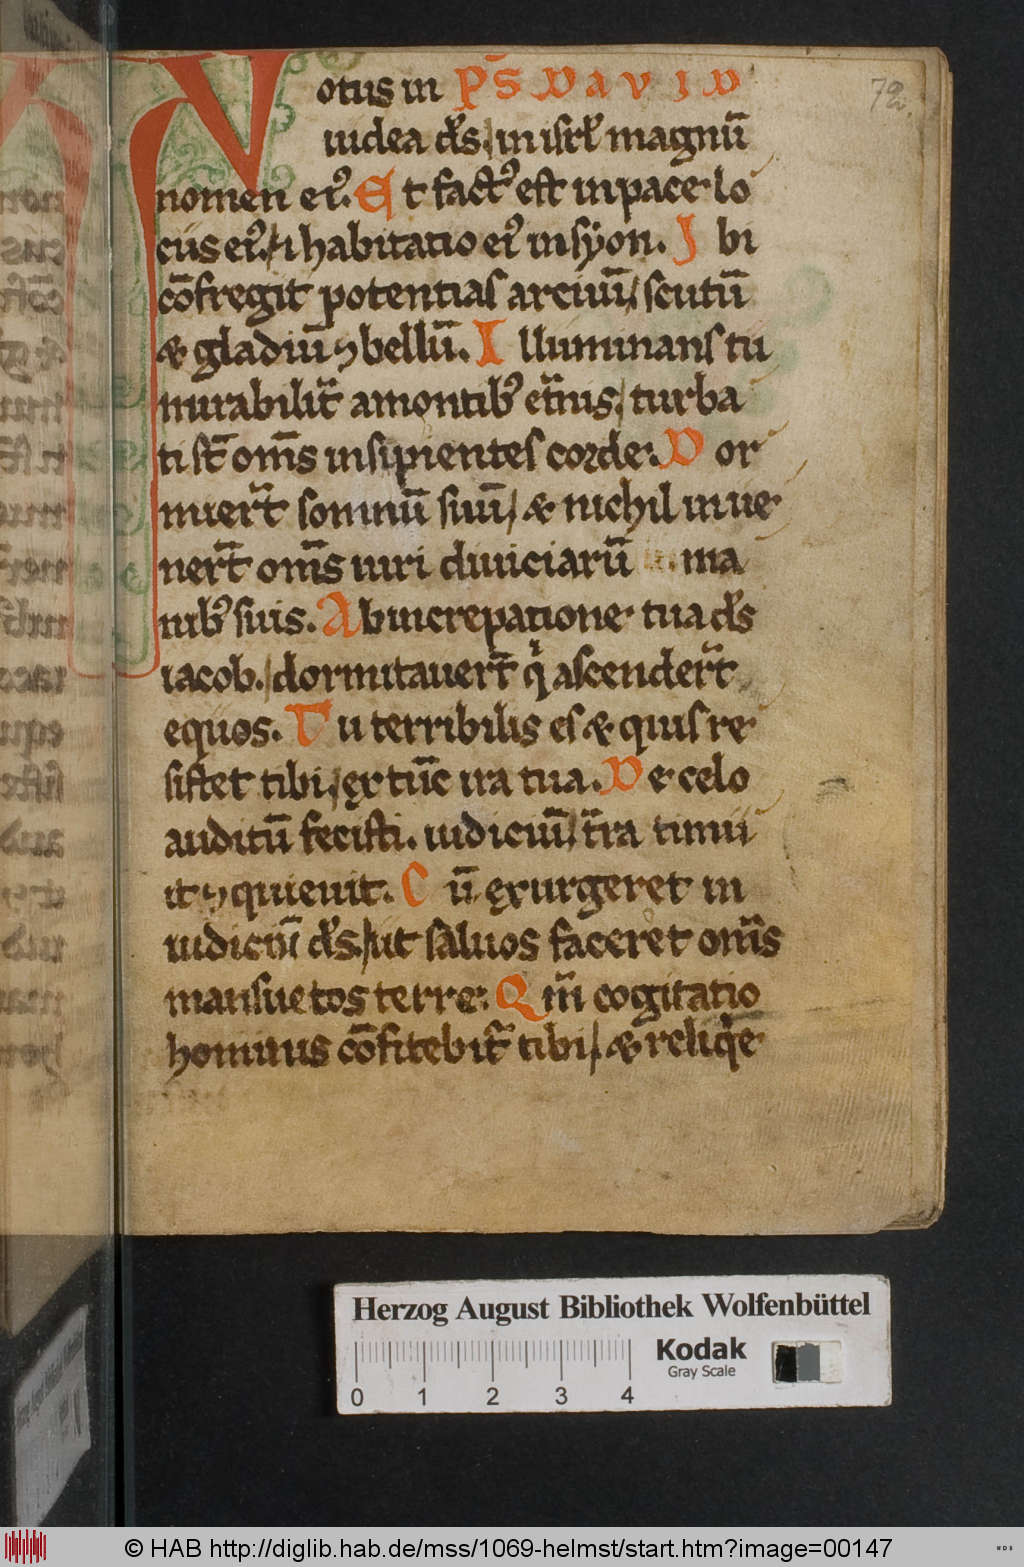 Notus in PS̄ DAVID
iudea dꝰs, in isrł magnū
nomen eiꝰ. Et factꝰ est in pace lo
cus eiꝰ, ⁊ habitatio eiꝰ in syon. Ibi
cōfregit potentias arcuū, scutū
& gladiū ⁊ bellū. Illuminans tu
mirabilit̄ a montibꝰ et̄nis, turba
ti st̄ om̄s insipientes corde. Dor
mier̄t somnū suū, & nichil inue
ner̄t om̄s uiri diuiciarū ma
nibꝰ suis. Ab increpatione tua dꝰs
iacob, dormitauer̄t qͥ ascender̄t
equos. Tu terribilis es & quis re
sistet tibi, ex tūc ira tua. De celo
auditū fecisti. iudiciū, t̄ra timu
it ⁊ quieuit. Cū exurgeret in
iudiciū dꝰs, ut saluos faceret om̄s
mansuetos terre. Qm̄ cogitatio
hominis cōfitebit̄ tibi, & reliqͥe
72
Herzog August Bibliothek Wolfenbüttel
Kodak
Gray Scale
0 1 2 3 4
© HAB http://diglib.hab.de/mss/1069-helmst/start.htm?image=00147